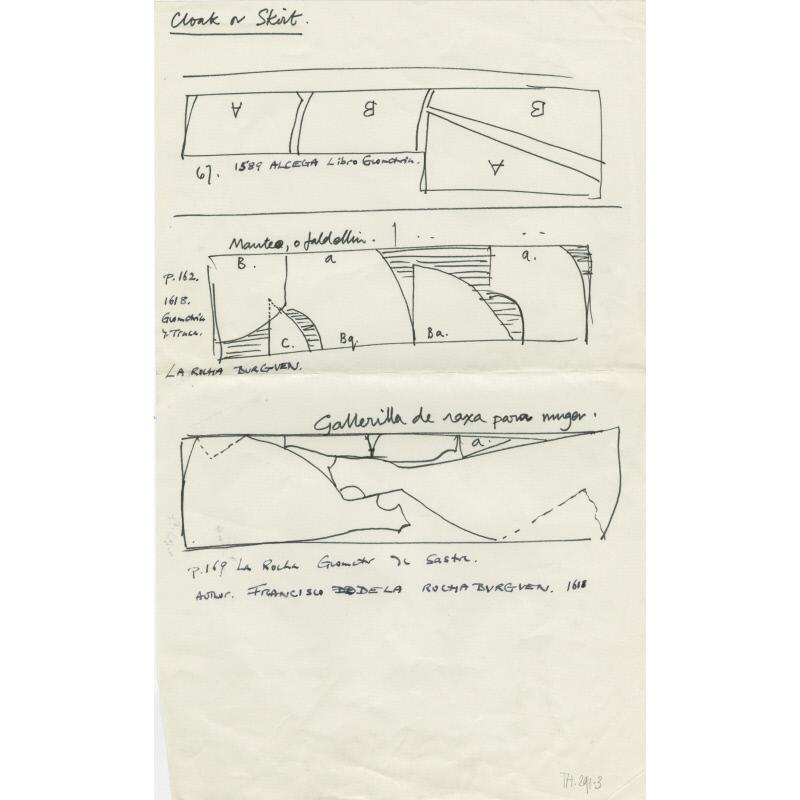 Cloak or Skirt.
A B B
A
67. 1589 ALCEGA Libro Geometria.
Manteo, o faldellin.
B. a a.
P.162.
1618.
Geometria
y Traca.
C. Ba. Ba.
LA ROCHA BURGUEN.
Gallerilla de raxa para muger.
a.
P.169 La Rocha Geometr y Sastre.
AUTHOR. FRANCISCO DE LA ROCHA BURGUEN. 1618
TH.291-3